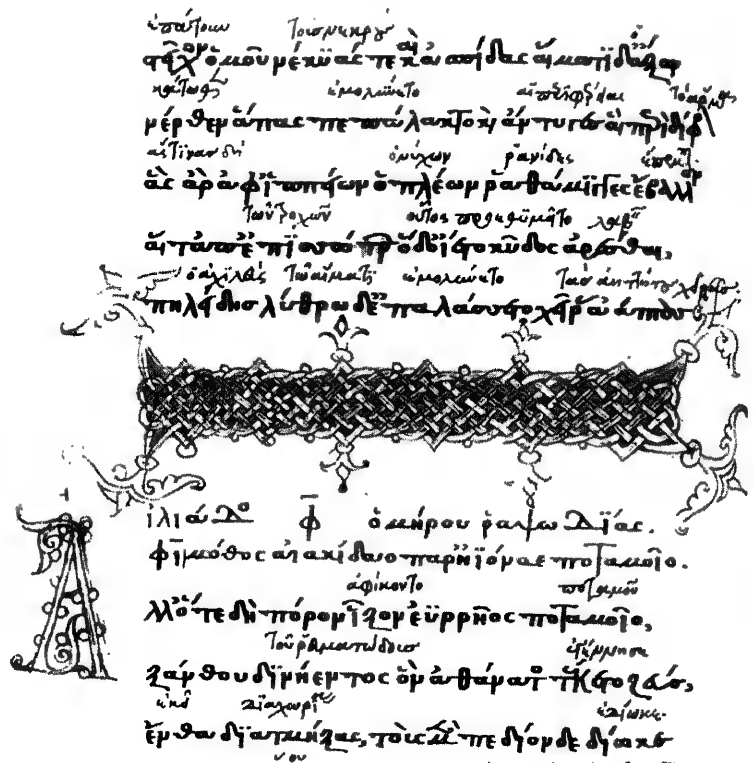 ἐπάτουν τοὺς νεκροὺς
στεῖβον ὁμοῦ νέκυάς τε καὶ ἀσπίδας αἵματι δ' ἄξων
κάτωθεν ἐμολύνετο αἱ περιφέρειαι
νέρθεν ἅπας πεπάλακτο καὶ ἄντυγες αἳ περὶ δίφρον
ἅστινας δὴ ὀνύχων ῥανίδες
ἃς ἄρ' ἀφ' ἱππείων ὁπλέων ῥαθάμιγγες ἔβαλλον
τῶν τροχῶν οὗτος προεθυμεῖτο λαβεῖν
αἵ τ' ἀπ' ἐπισσώτρων ὁ δὲ ἵετο κῦδος ἀρέσθαι,
ὁ ἀχιλλεὺς τῶ αἵματι ἐμολύνετο τὰς
πηλείδης λύθρω δὲ παλάσσετο χεῖρας ἀάπτους
ἰλιάδος φ ὁμήρου ῥαψωδίας.
φῖ μόθος αἰακίδαο παρ' ἠϊόνας ποταμοῖο.
ἀφίκοντο ποταμοῦ
Ἀλλ' ὅτε δὴ πόρον ἷξον ἐϋρρῆος ποταμοῖο,
τοῦ ῥευματώδους ἐγέννησε
ξάνθου δινήεντος ὃν ἀθάνατος τέκετο ζεύς,
ἐκεῖ διαχωρίσας ἐδίωκε.
ἔνθα διατμήξας, τοὺς μὲν πεδίον δε δίωκε